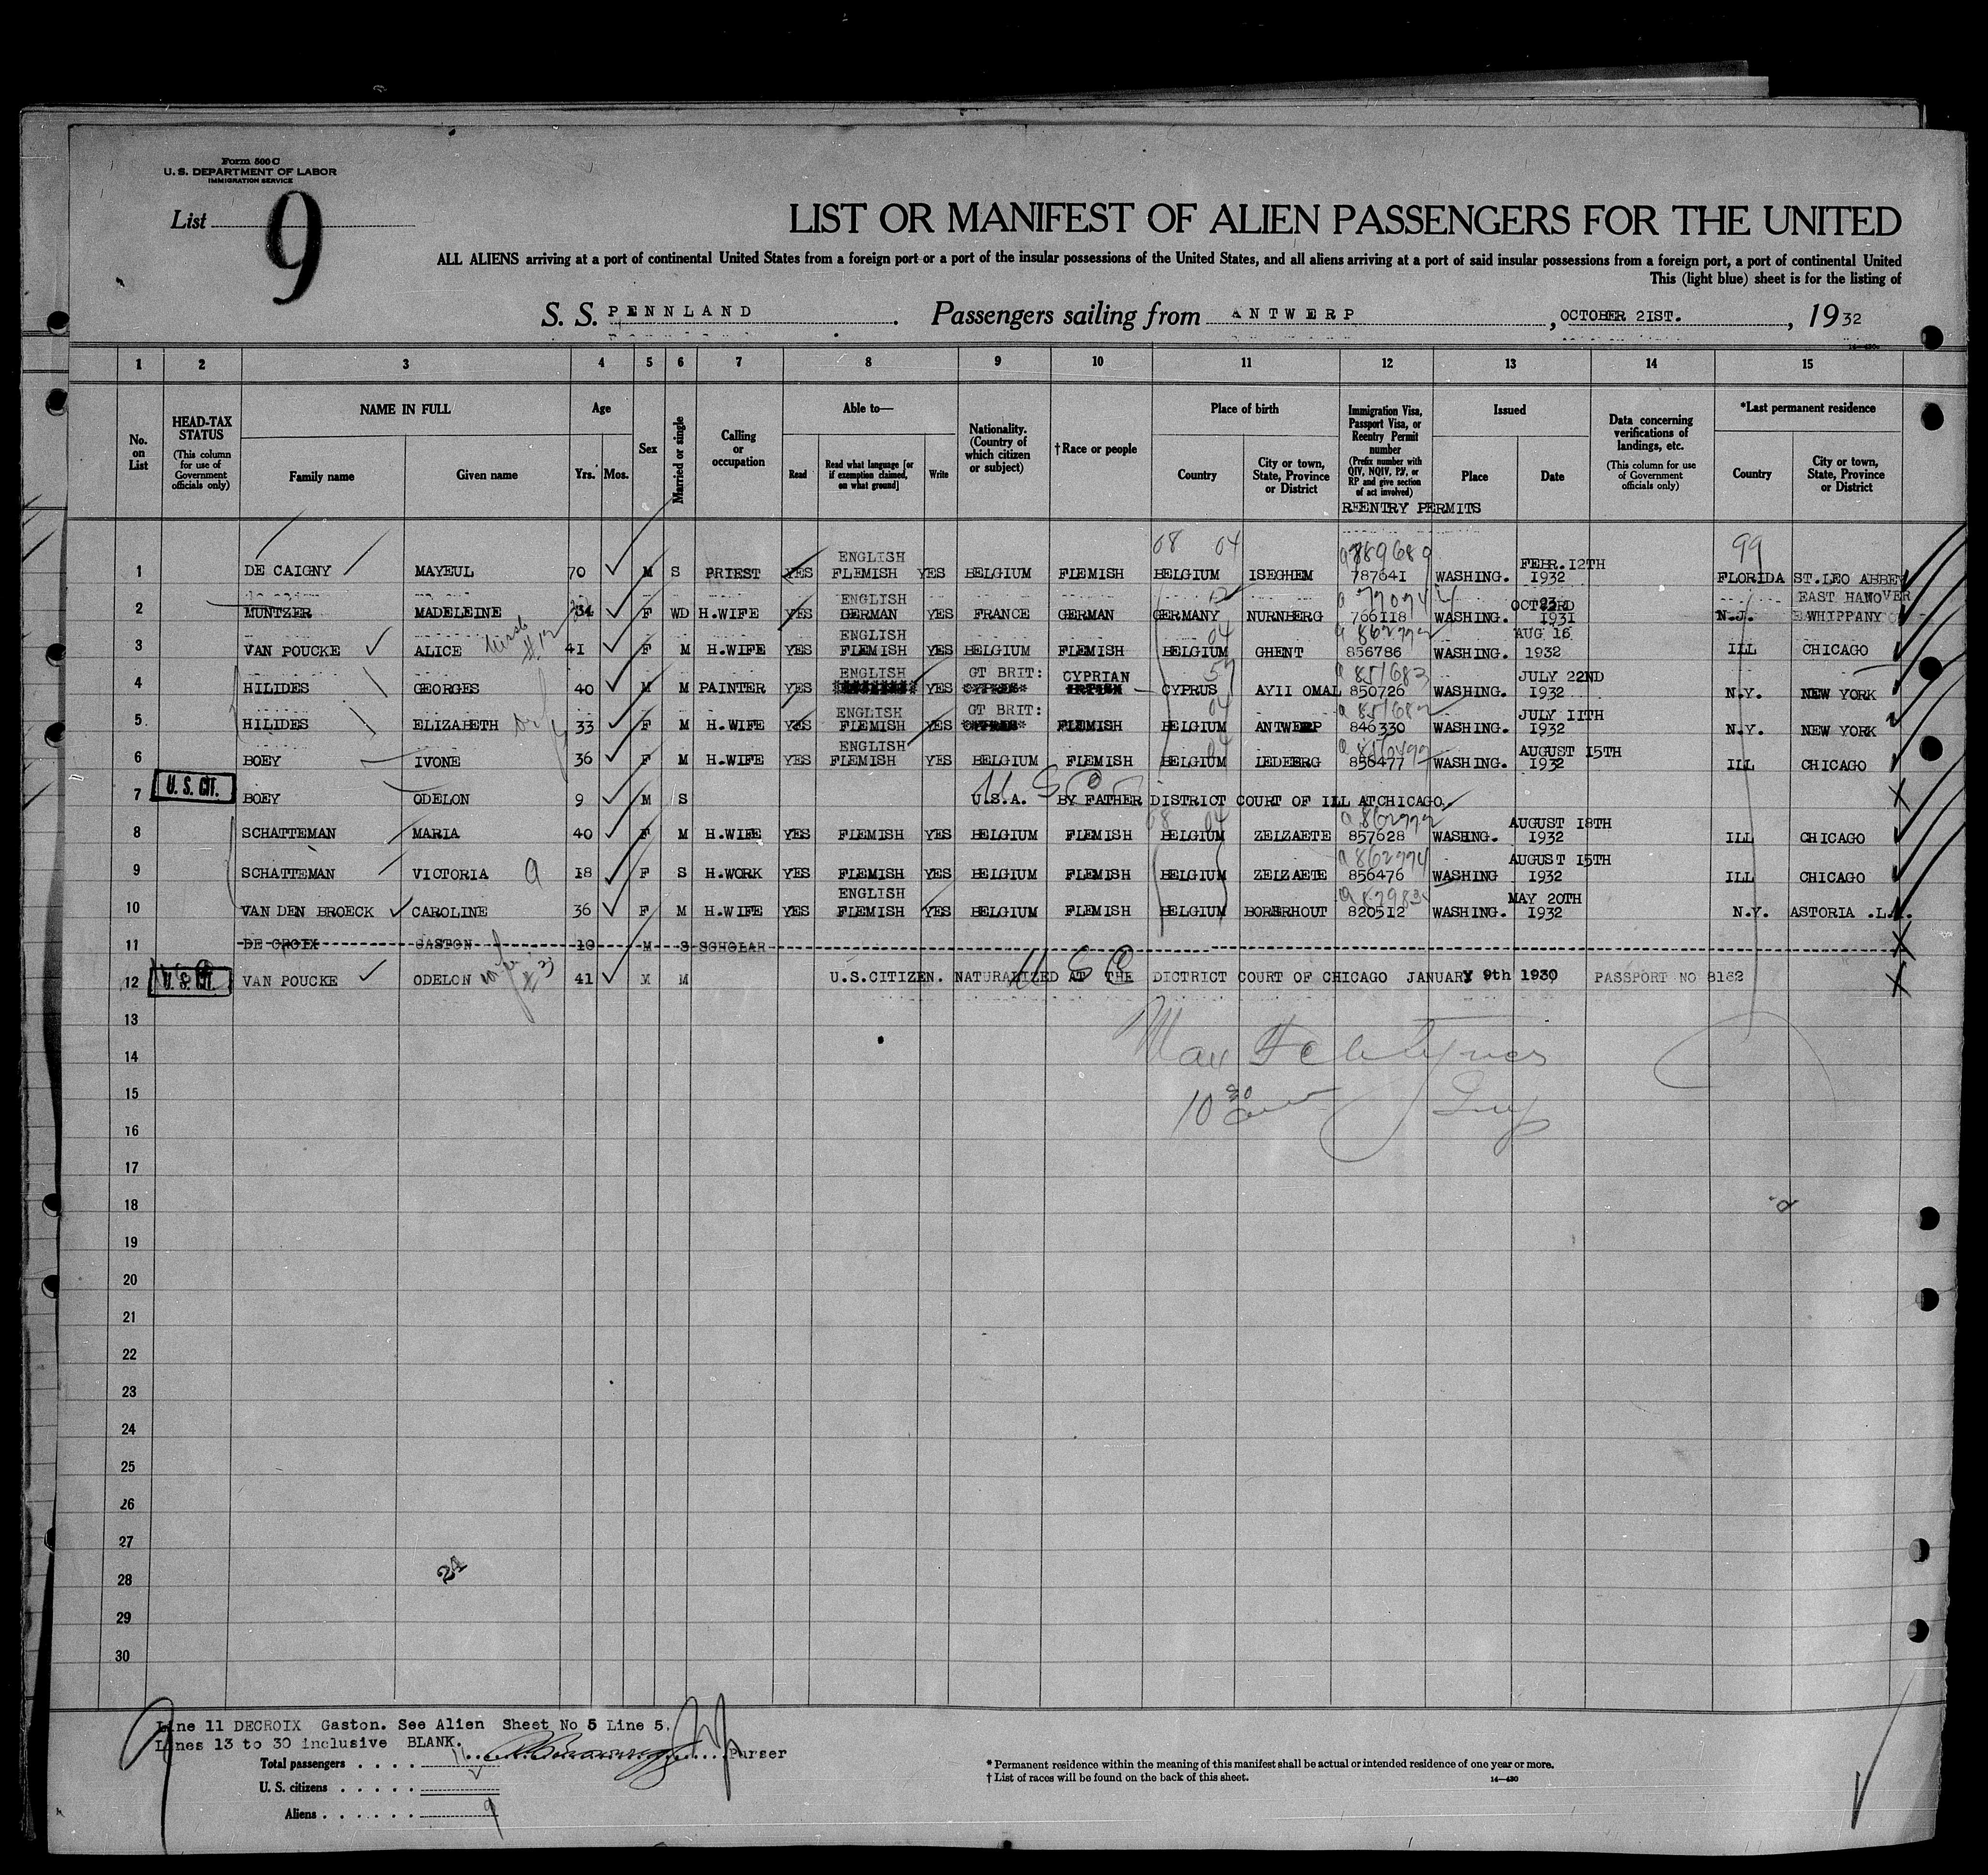 Form 500 C
U. S. DEPARTMENT OF LABOR
IMMIGRATION SERVICE
List 9
LIST OR MANIFEST OF ALIEN PASSENGERS FOR THE UNITED
ALL ALIENS arriving at a port of continental United States from a foreign port or a port of the insular possessions of the United States, and all aliens arriving at a port of said insular possessions from a foreign port, a port of continental United
This (light blue) sheet is for the listing of
S. S. PENNLAND. Passengers sailing from ANTWERP, OCTOBER 21ST., 1932
1 2 3 4 5 6 7 8 9 10 11 12 13 14 15
No. on List
HEAD-TAX STATUS (This column for use of Government officials only)
NAME IN FULL
Family name
Given name
Age
Yrs. Mos.
Sex
Married or single
Calling or occupation
Able to—
Read
Read what language [or if exemption claimed, on what ground]
Write
Nationality. (Country of which citizen or subject)
†Race or people
Place of birth
Country
City or town, State, Province or District
Immigration Visa, Passport Visa, or Reentry Permit number (Prefix number with QIV, NQIV, PV, or RP and give section of act involved)
REENTRY PERMITS
Issued
Place
Date
Data concerning verifications of landings, etc. (This column for use of Government officials only)
*Last permanent residence
Country
City or town, State, Province or District
08 04 a889689 99
ENGLISH FEBR.12TH
1 DE CAIGNY MAYEUL 70 M S PRIEST YES FLEMISH YES BELGIUM FLEMISH BELGIUM ISEGHEM 787641 WASHING. 1932 FLORIDA ST.LEO ABBEY
ENGLISH EAST HANOVER
2 MUNTZER MADELEINE 34 F WD H.WIFE YES GERMAN YES FRANCE GERMAN GERMANY NURNBERG 766118 WASHING. 1931 N.J. WHIPPANY
ENGLISH 04 a 862772 AUG 16
3 VAN POUCKE ALICE 41 F M H.WIFE YES FLEMISH YES BELGIUM FLEMISH BELGIUM GHENT 856786 WASHING. 1932 ILL CHICAGO
ENGLISH GT BRIT: CYPRIAN 57 a 851683 JULY 22ND
4 HILIDES GEORGES 40 M M PAINTER YES YES CYPRUS AYII OMAL 850726 WASHING. 1932 N.Y. NEW YORK
ENGLISH GT BRIT: 04 a 851682 JULY 11TH
5 HILIDES ELIZABETH 33 F M H.WIFE YES FLEMISH YES FLEMISH BELGIUM ANTWERP 846330 WASHING. 1932 N.Y. NEW YORK
ENGLISH 04 AUGUST 15TH
6 BOEY IVONE 36 F M H.WIFE YES FLEMISH YES BELGIUM FLEMISH BELGIUM LEDEBRG 856477 WASHING. 1932 ILL CHICAGO
U. S. CIT. U S C
7 BOEY ODELON 9 M S U.S.A. BY FATHER DISTRICT COURT OF ILL ATCHICAGO.
08 04 AUGUST 18TH
8 SCHATTEMAN MARIA 40 F M H.WIFE YES FLEMISH YES BELGIUM FLEMISH BELGIUM ZELZAETE 857628 WASHNG. 1932 ILL CHICAGO
a 862774 AUGUST 15TH
9 SCHATTEMAN VICTORIA 18 F S H.WORK YES FLEMISH YES BELGIUM FLEMISH BELGIUM ZELZAETE 856476 WASHING 1932 ILL CHICAGO
ENGLISH MAY 20TH
10 VAN DEN BROECK CAROLINE 36 F M H.WIFE YES FLEMISH YES BELGIUM FLEMISH BELGIUM BORHRHOUT 820512 WASHING. 1932 N.Y. ASTORIA .L.I.
11 DE CROIX GASTON 10 M S SCHOLAR
U. S. CIT. U S C
12 VAN POUCKE ODELON 41 M M U.S.CITIZEN. NATURALIZED AT THE DICTRICT COURT OF CHICAGO JANUARY 9th 1930 PASSPORT NO 8162
13
14 Max
15 10 30
16
17
18
19
20
21
22
23
24
25
26
27
28 24
29
30
Line 11 DECROIX Gaston. See Alien Sheet No 5 Line 5.
Lines 13 to 30 inclusive BLANK.
Purser
Total passengers . . . . 11
U. S. citizens . . . . .
Aliens . . . . . . 9
* Permanent residence within the meaning of this manifest shall be actual or intended residence of one year or more.
† List of races will be found on the back of this sheet. 14—430